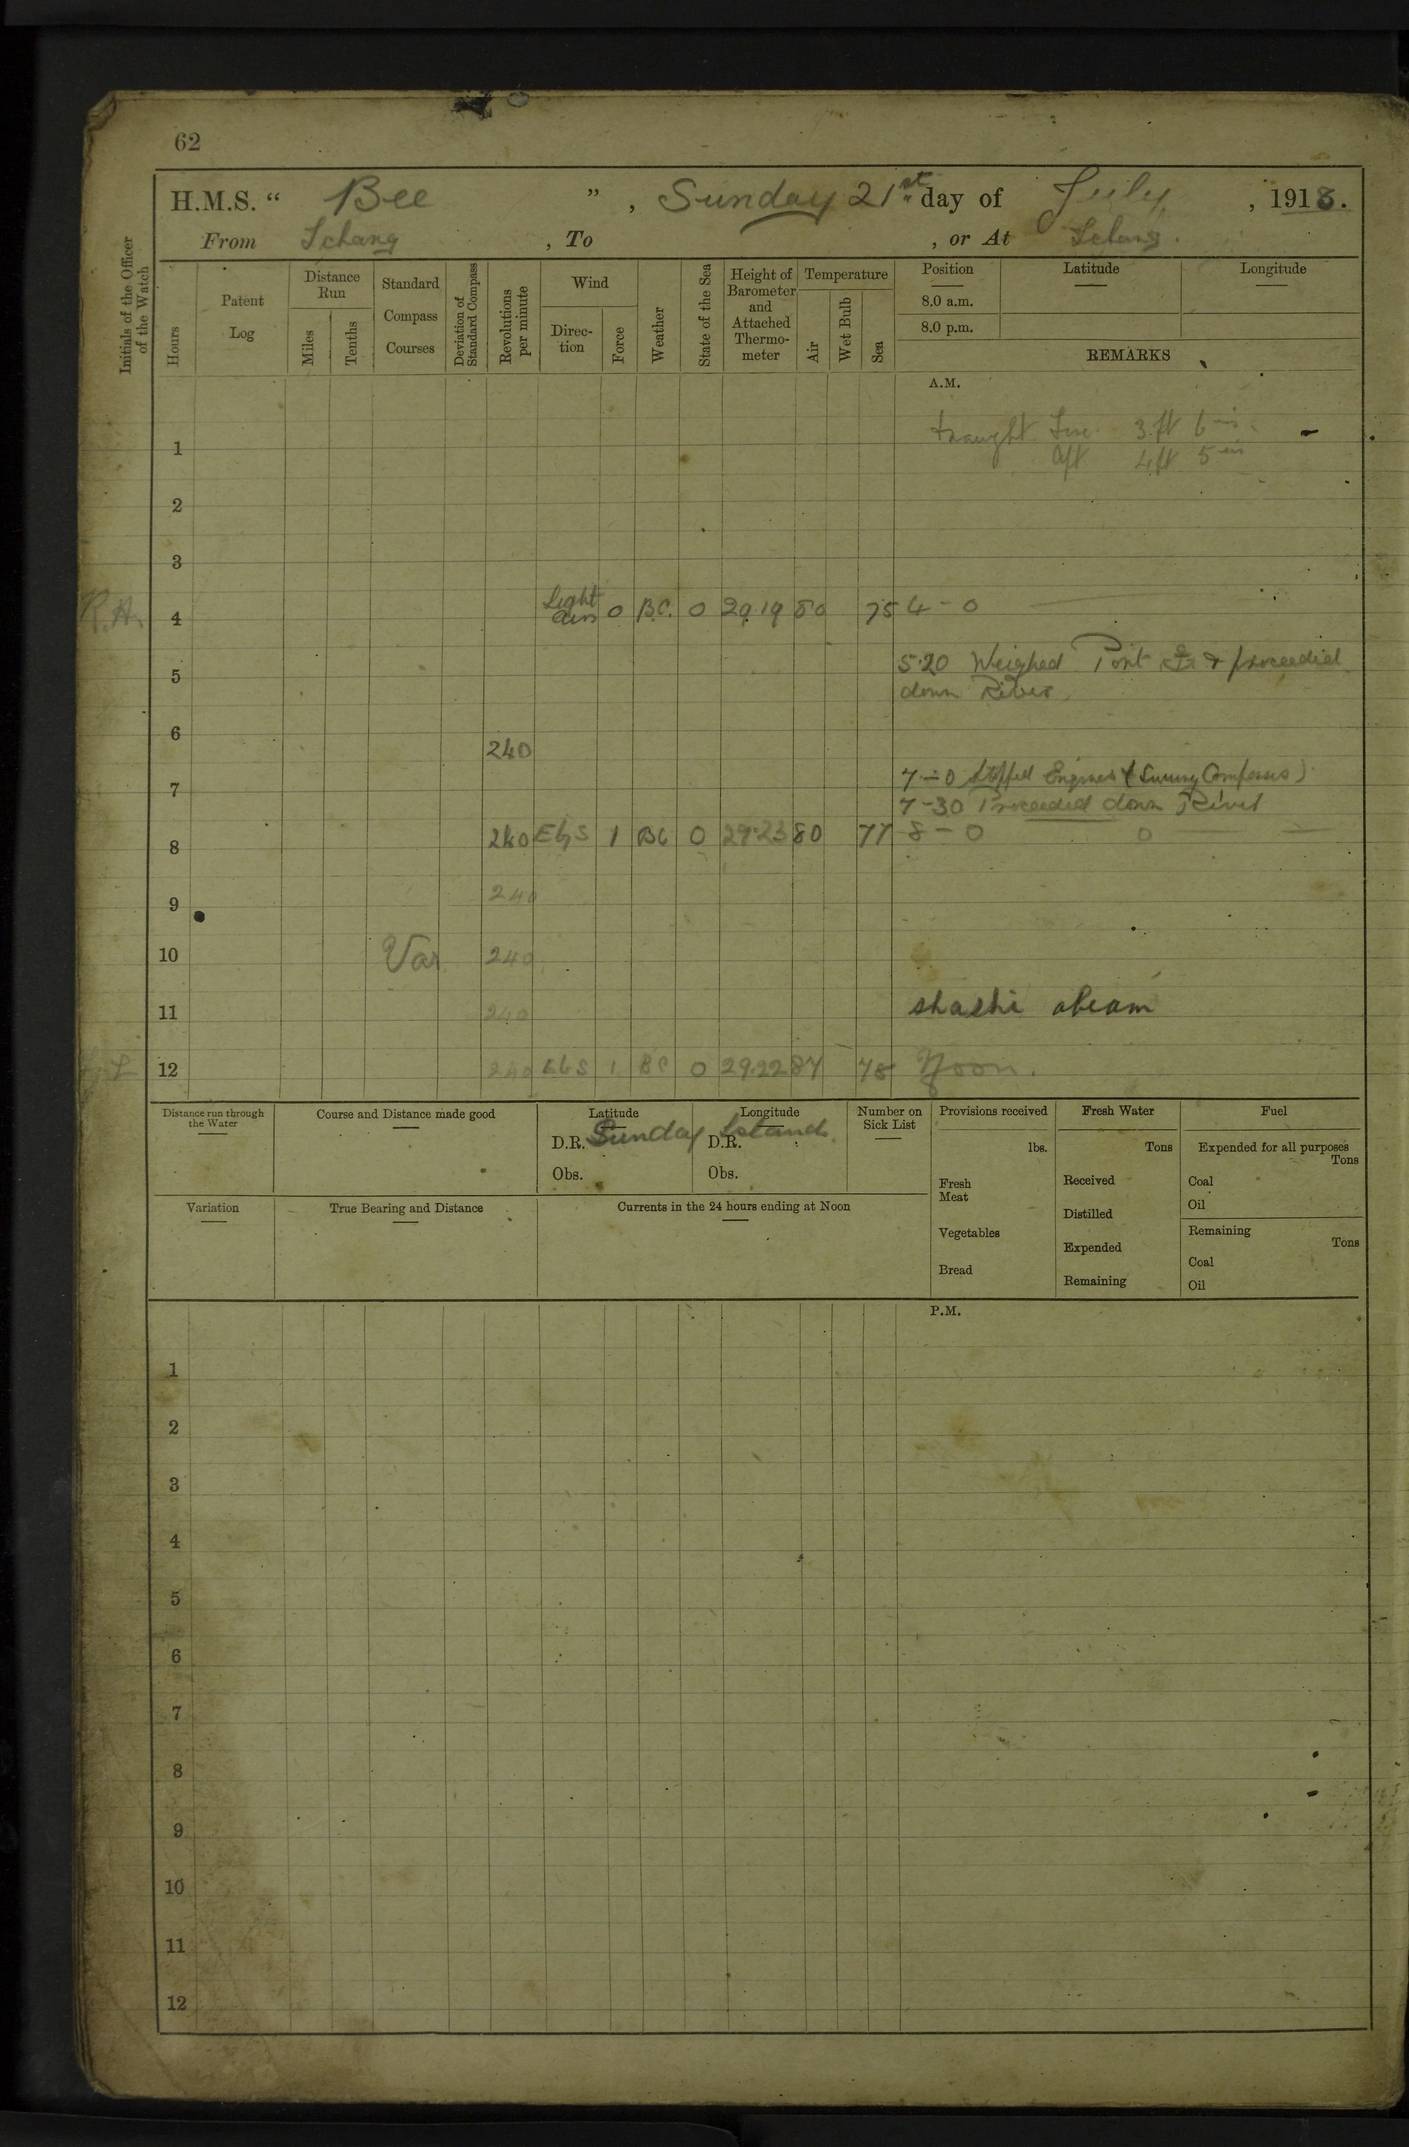 62
H.M.S. “ Bee ” , Sunday 21st day of July , 1918.
From Ichang , To , or At Ichang.
Initials of the Officer of the Watch
Hours
Patent Log
Distance Run
Miles
Tenths
Standard Compass Courses
Deviation of Standard Compass
Revolutions per minute
Wind
Direc-tion
Force
Weather
State of the Sea
Height of Barometer and Attached Thermo-meter
Temperature
Air
Wet Bulb
Sea
Position
Latitude
Longitude
8.0 a.m.
8.0 p.m.
REMARKS
A.M.
draught For. 3 ft 6 ins.
1
Aft 4 ft 5 ins
2
3
R.H. 4 Light airs 0 B.C. 0 29.19 80 75 4 - 0
5.20 Weighed Port & proceeded
5
down River
6
240
7-0 Stopped Engines
7
7-30 Proceeded down River
8 240 EbyS 1 BC 0 29.23 80 77 8 - 0 0
9 240
10 Var 240
11 240 shashi abeam
12 240 EbS 1 BC 0 29.22 84 78 Noon.
Distance run through the Water
Course and Distance made good
Latitude
Longitude
Number on Sick List
Provisions received
Fresh Water
Fuel
D.R. Sunday Island. D.R.
Obs. Obs.
lbs.
Tons
Expended for all purposes
Tons
Fresh Meat
Received
Coal
Oil
Variation
True Bearing and Distance
Currents in the 24 hours ending at Noon
Vegetables
Distilled
Remaining
Tons
Expended
Coal
Bread
Remaining
Oil
P.M.
1
2
3
4
5
6
7
8
9
10
11
12